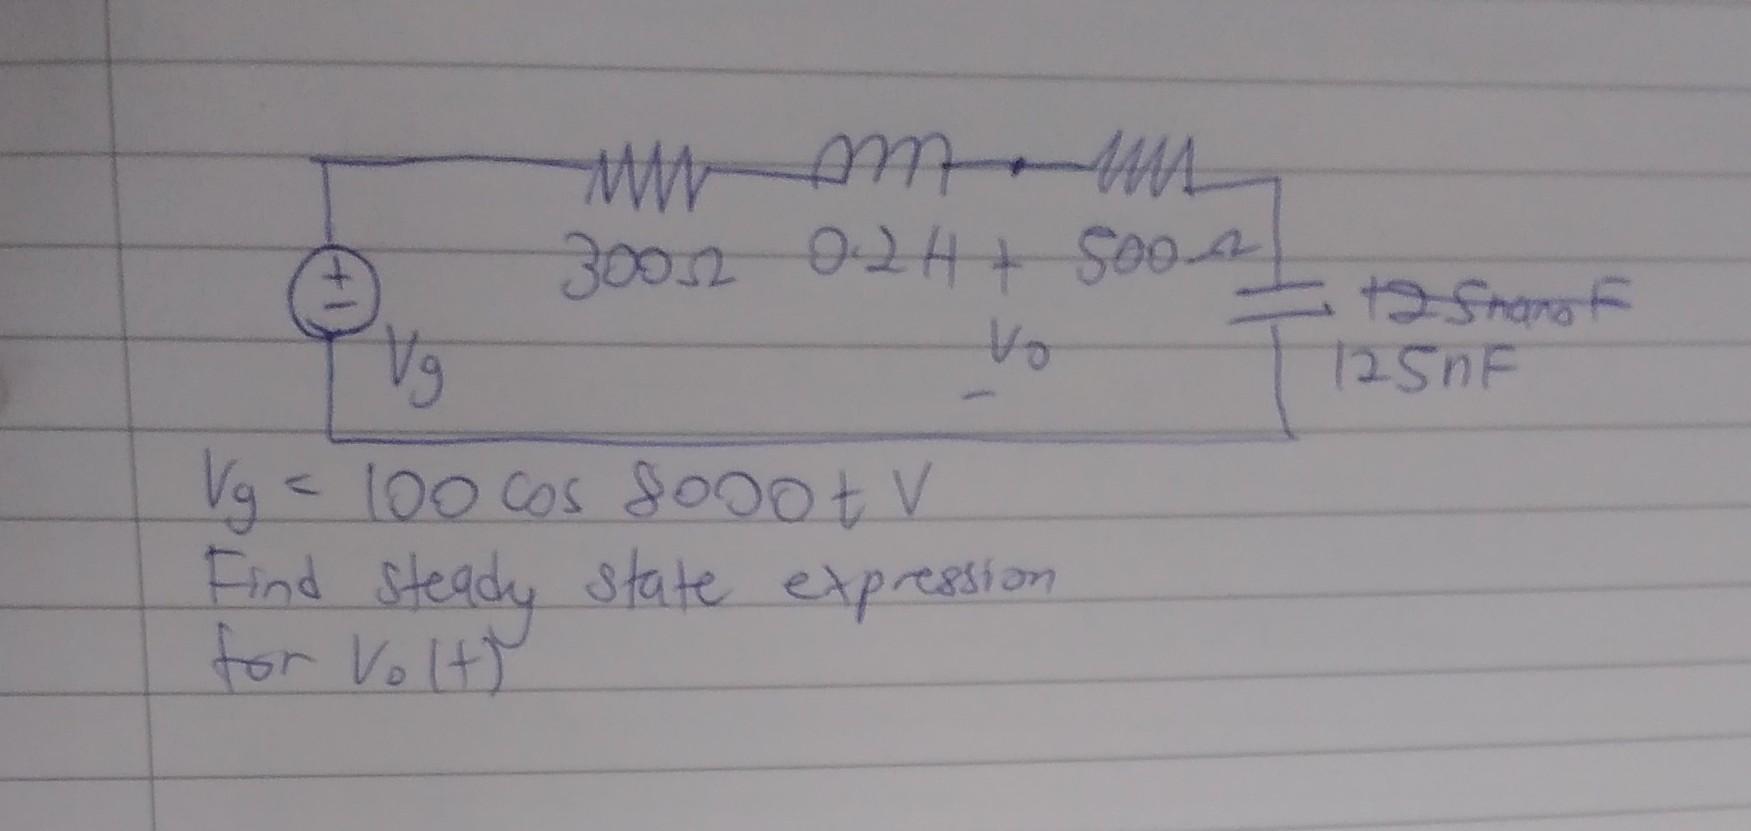 300Ω 0.2H + 500Ω
+
-
Vg
Vo
-
125nanoF
125nF
Vg = 100 cos 8000t V
Find steady state expression
for Vo(t)